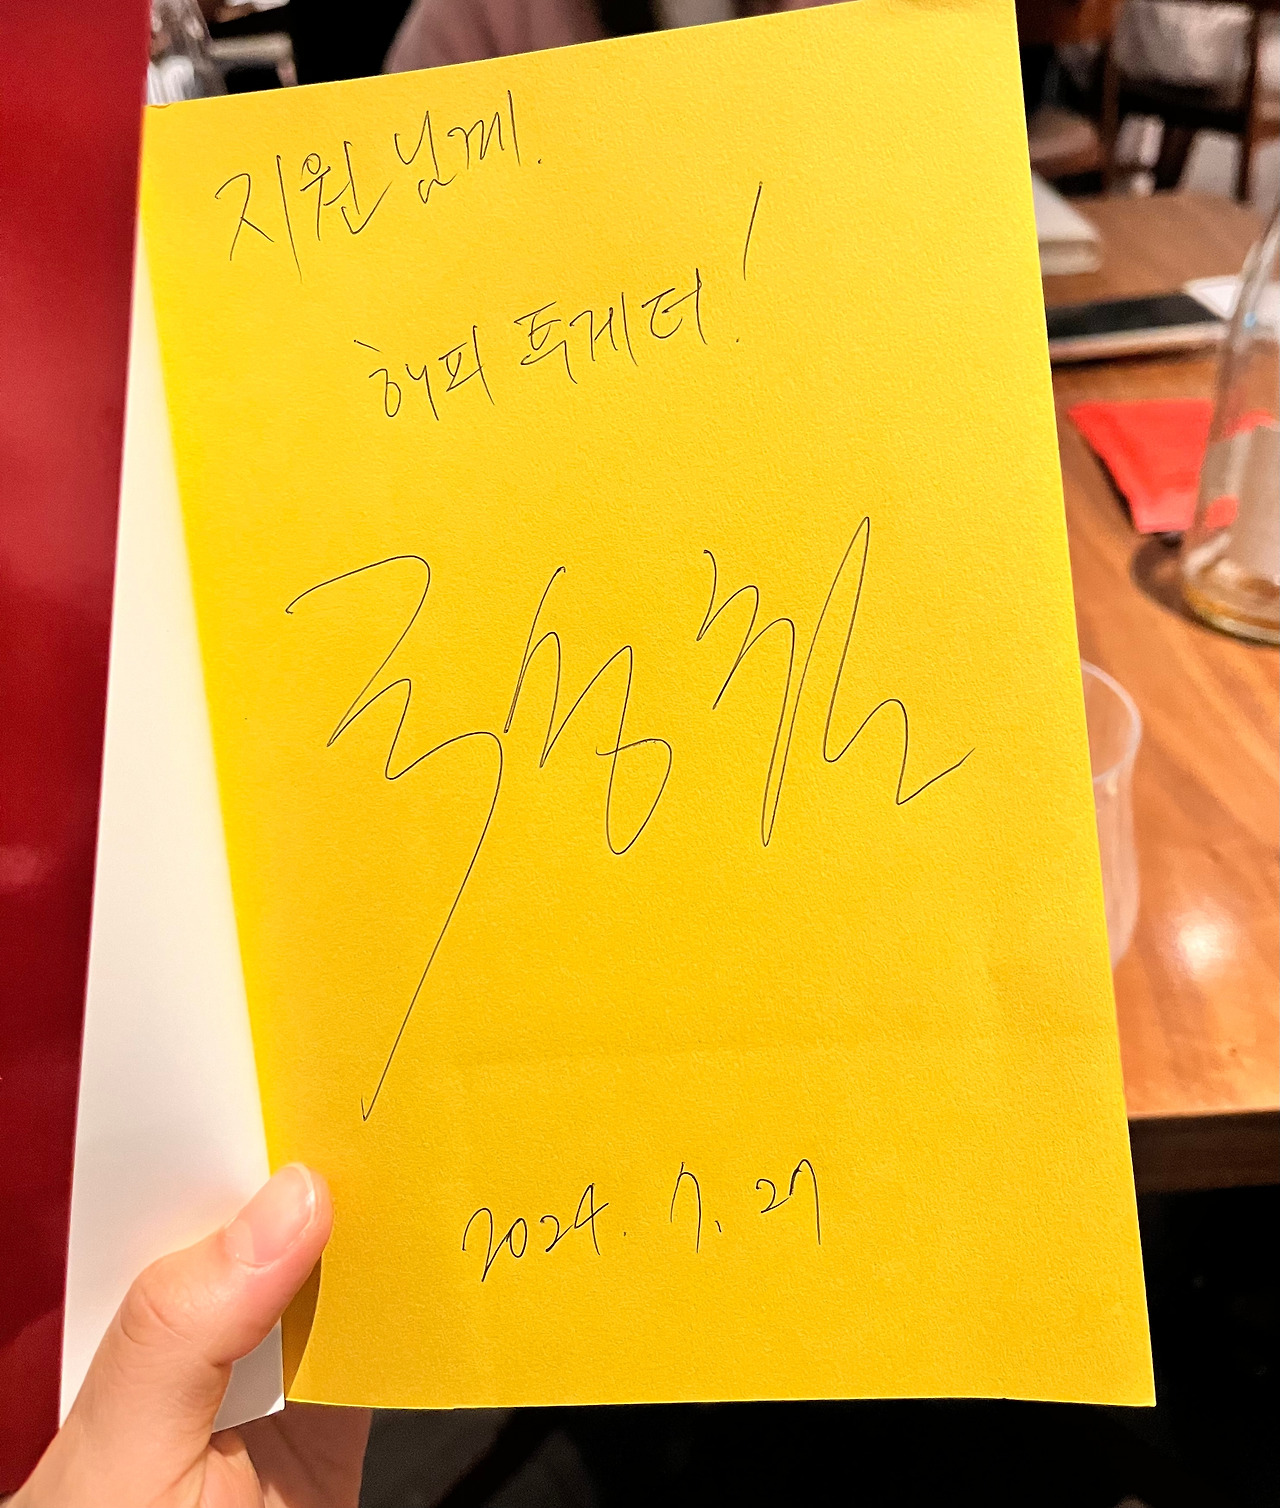 지원님께.
해피 투게더!
2024. 7. 27